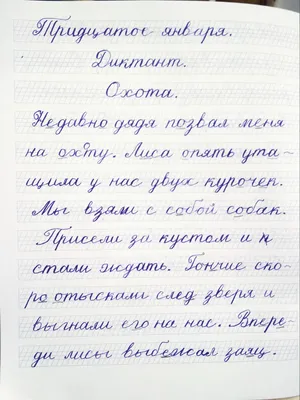 Тридцатое января.
Диктант.
Охота.
Недавно дядя позвал меня
на охоту. Лиса опять ута-
щила у нас двух курочек.
Мы взяли с собой собак.
Присели за кустом и
стали ждать. Гончие ско-
ро отыскали след зверя и
выгнали его на нас. Впере-
ди лисы выбежал заяц.